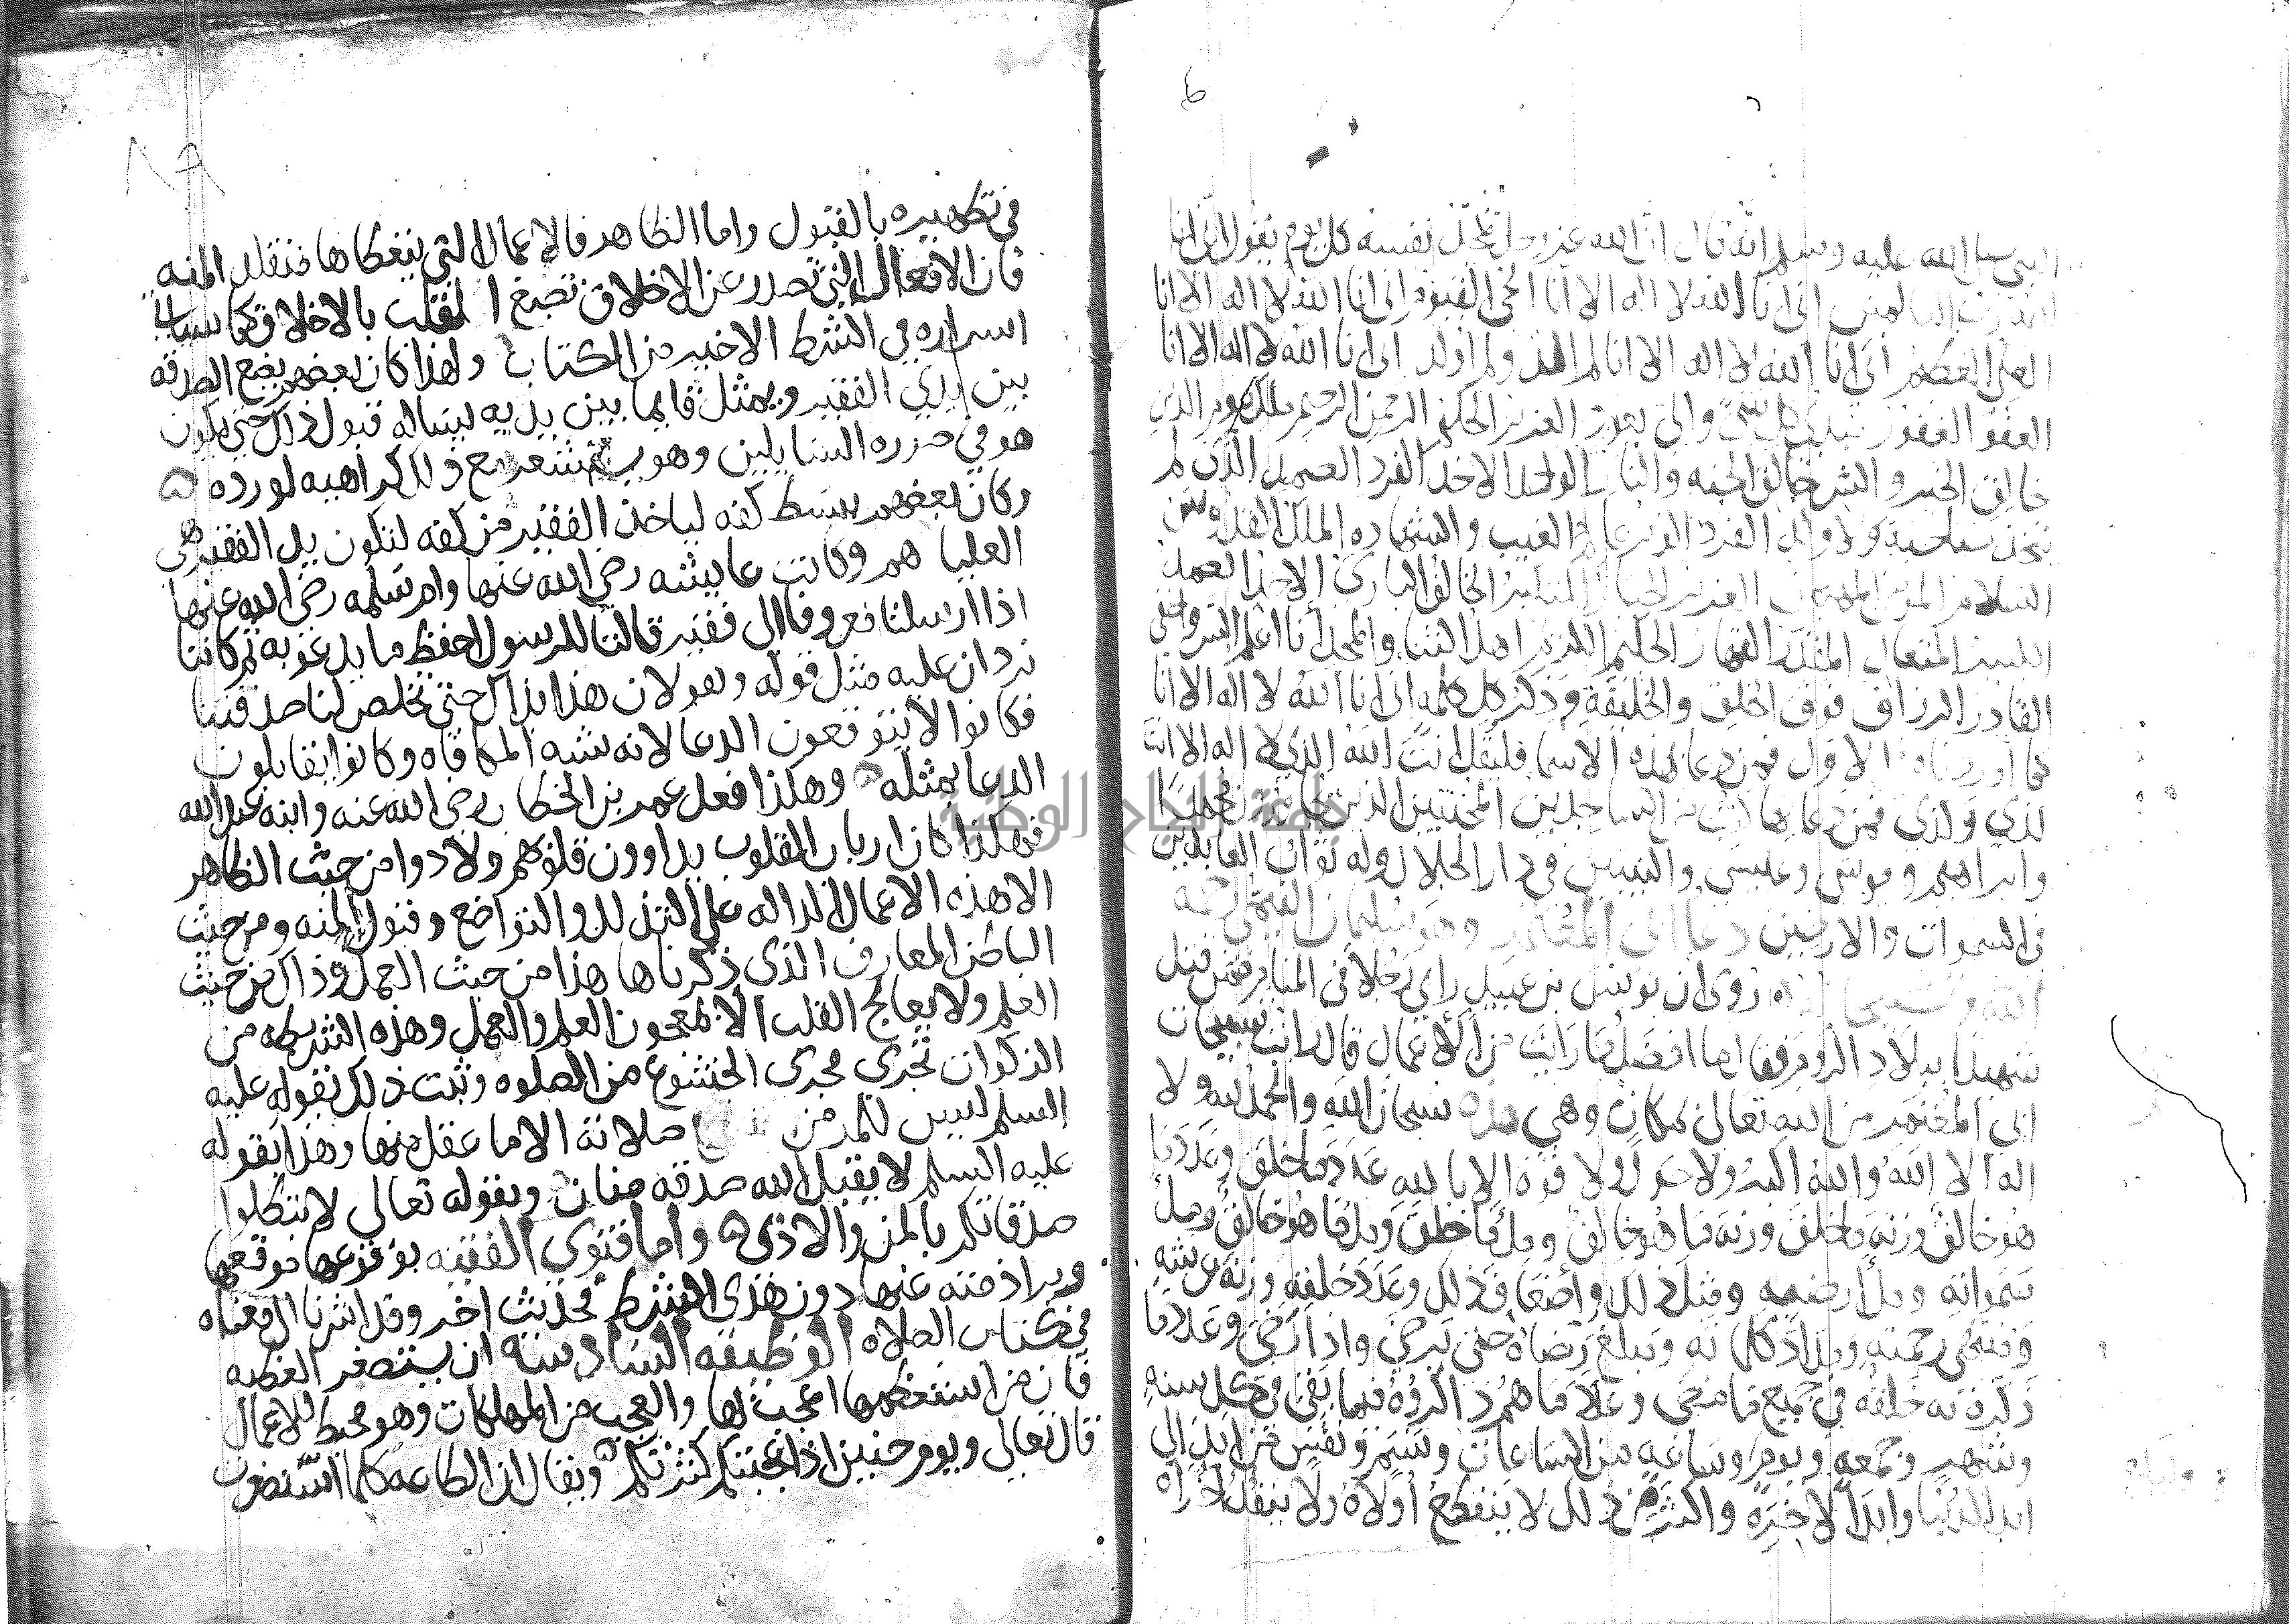 النبي صلى الله عليه وسلم انه قال ان الله عز وجل يمجد نفسه كل يوم يقول اني انا
الله رب العالمين اني انا الله لا اله الا انا الحي القيوم اني انا الله لا اله الا انا
العلي العظيم اني انا الله لا اله الا انا لم الد ولم اولد اني انا الله لا اله الا انا
العفو الغفور مبدي كل شي والي يعود العزيز الحكيم الرحمن الرحيم ملك يوم الدين
خالق الخير والشر خالق الجنه والنار الواحد الاحد الفرد الصمد الذي لم
يتخذ صاحبة ولا ولدا الفرد الوتر عالم الغيب والشهاده الملك القدوس
السلام المومن المهيمن العزيز الجبار المتكبر الخالق الباري الاحد المصور
الكبير المتعال المقتدر القهار الحليم الكريم اهل الثنا والمجد انا اعلم السر واخفى
القادر الرزاق فوق الخلق والخليقة وذكر كل كلمه اني انا الله لا اله الا انا
كما اوردناه في الاول فمن دعا بهذه الاسما فليقل انت الله الذي لا اله الا انت
كذي وكذي فمن دعا بها كتب من الساجدين المخبتين الذين يجاورون محمدا
وابراهيم وموسى وعيسى والنبيين في دار الجلال وله ثواب العابدين
في السموات والارضين دعا ابي المعتمر وهو سليمان التيمي رحمه
الله وتسبيحاته روى ان يونس بن عبيد راى رجلا في المنام ممن قتل
شهيدا ببلاد الروم فقال ما افضل ما رايت من الاعمال قال رايت تسبيحات
ابي المعتمر من الله تعالى بمكان وهي هذه سبحان الله والحمد لله ولا
اله الا الله والله اكبر ولا حول ولا قوة الا بالله عدد ما خلق وعدد ما
هو خالق وزنه ما خلق وزنه ما هو خالق ومل ما خلق ومل ما هو خالق ومل
سمواته ومل ارضه ومثل ذلك واضعاف ذلك وعدد خلقه وزنه عرشه
ومنتهى رحمته ومداد كلماته ومبلغ رضاه حتى يرضى واذا رضي وعدد ما
ذكره به خلقه في جميع ما مضى وعدد ما هم ذاكروه فيما بقي في كل سنه
وشهر وجمعه ويوم وساعه من الساعات وشم ونفس من ابد الى
ابد الدنيا وابد الاخره واكثر من ذلك لا ينقطع اولاه ولا ينفد اخراه
في تطهيره بالقبول واما الظاهر فالاعمال التي يتعطاها متقلد المنه
فان الافعال التي تصدر عن الاخلاق تصبغ القلب بالاخلاق كما سياتي
اسراره في الشطر الاخير من الكتاب ولهذا كان بعضهم يضع الصدقه
بين يدي الفقير ويمثل قايما بين يديه يساله قبول ذلك حتى يكون
هو في صوره السايلين وهو يستشعر مع ذلك كراهيه لو رده
وكان بعضهم يبسط كفه لياخذ الفقير من كفه لتكون يد الفقير هي
العليا وكانت عايشه رضي الله عنها وام سلمه رضي الله عنها
اذا ارسلتا معروفا الى فقير قالتا للرسول احفظ ما يدعو به ثم كانتا
تردان عليه مثل قوله وتقولان هذا بذاك حتى تخلص لنا صدقتنا
فكانوا لا يتوقعون الدعا لانه شبه المكافاه وكانوا يقابلون
الدعا بمثله وهكذا فعل عمر بن الخطاب رضي الله عنه وابنه عبد الله
فهكذا كان ارباب القلوب يداوون قلوبهم ولا دوا من حيث الظاهر
الا هذه الاعمال الداله على التذلل والتواضع وقبول المنه ومن حيث
الباطن المعارف الذي ذكرناها هذا من حيث العمل وذاك من حيث
العلم ولا يعالج القلب الا بمعجون العلم والعمل وهذه الشريطه من
الزكوات تجري مجرى الخشوع من الصلوه وثبت ذلك بقوله عليه
السلم ليس للمومن من صلاته الا ما عقل منها وهذا بقوله
عليه السلم لا يقبل الله صدقه منان وبقوله تعالى لا تبطلوا
صدقاتكم بالمن والاذى واما فتوى الفقيه بوقوعها موقعها
وبراة ذمته عنها دون هذي الشرط فحديث اخر وقد اشرنا الى معناه
في كتاب الصلاه الوظيفه السادسه ان يستصغر العطيه
فان من استعظمها اعجب بها والعجب من المهلكات وهو محبط للاعمال
قال تعالى ويوم حنين اذ اعجبتكم كثرتكم ويقال ان الطاعه كلما استصغرت